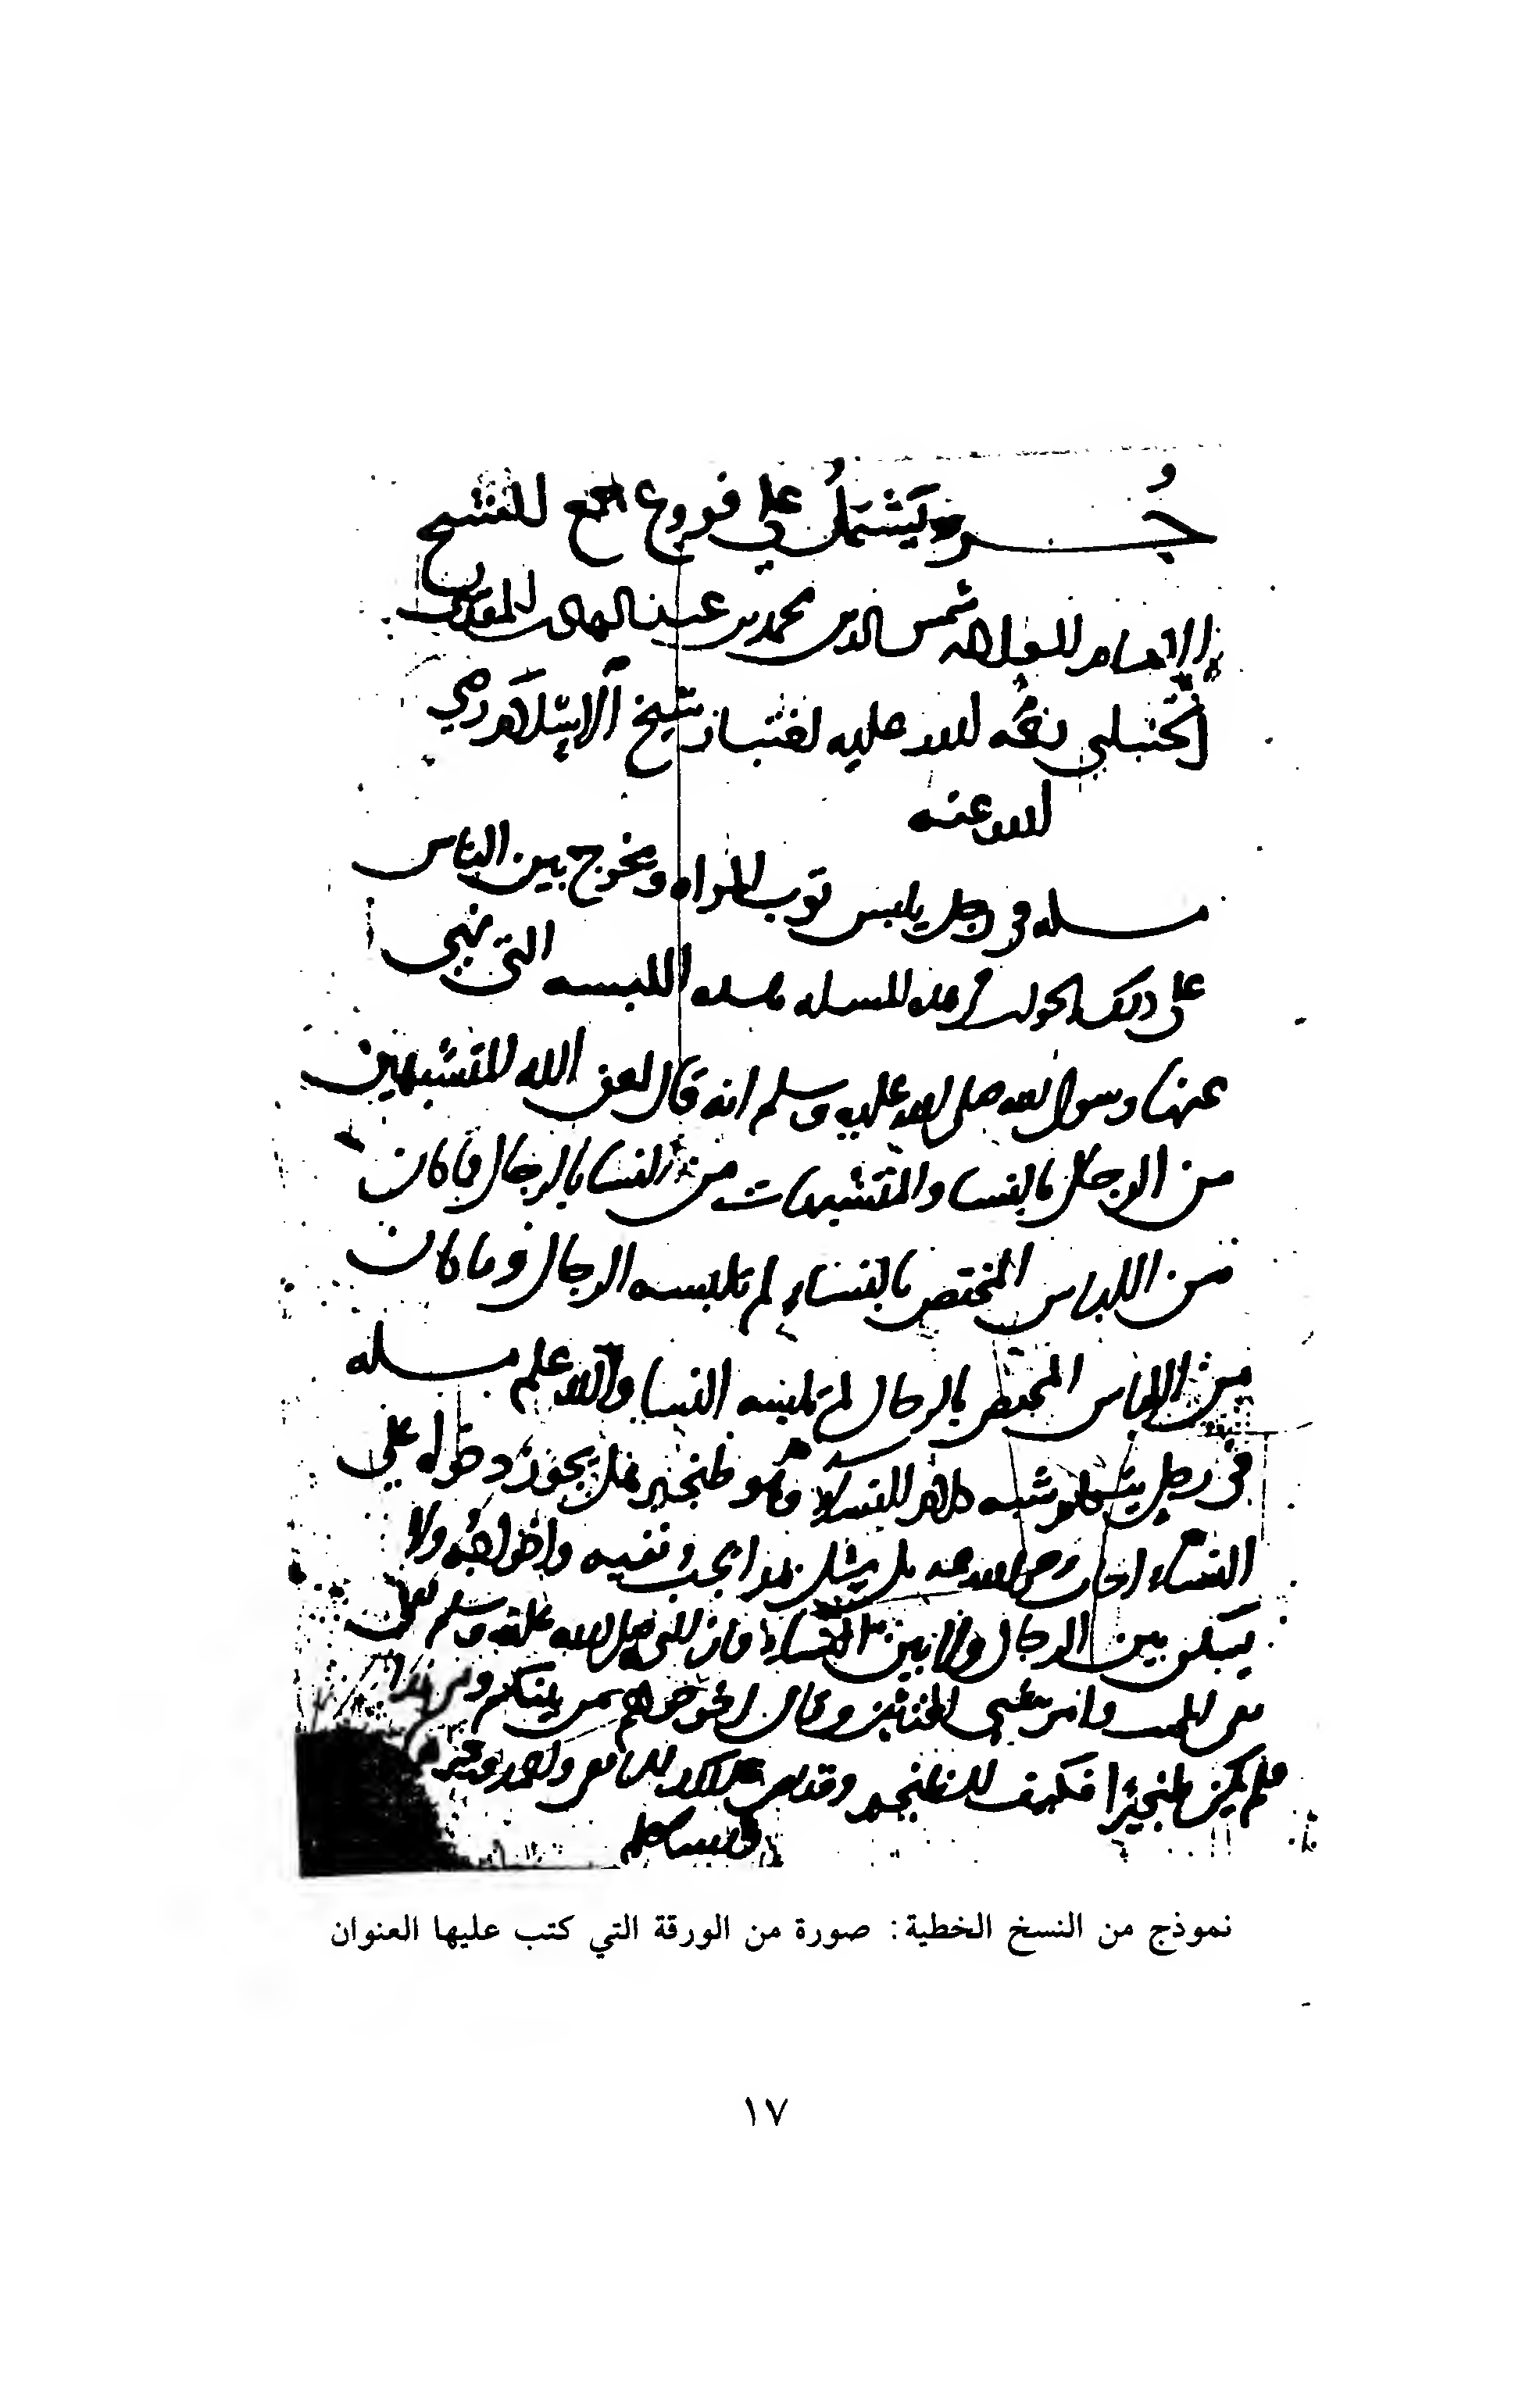 جزء يشتمل على فروع جمع الشيخ
الامام العلامه شمس الدين محمد بن عبد الهادي المقدسي
الحنبلي رحمة الله عليه شيخ الاسلام رضي
الله عنه
مسله في رجل يلبس ثوب المراه ويخرج بين الناس
على ذلك الجواب في هذه المسله هذه اللبسه التي نهى
عنها رسول الله صلى الله عليه وسلم انه قال لعن الله المتشبهين
من الرجال بالنساء والمتشبهات من النسا بالرجال فما كان
من اللباس المختص بالنساء لم تلبسه الرجال وما كان
من اللباس المختص بالرجال لم تلبسه النسا والله اعلم مسله
في رجل للنساء وهو طنجير فهل يجوز دخوله على
النساء اجاب رضي الله عنه بل مثل هذا يجب نفيه واخراجه ولا
يسكن بين الرجال ولا بين النساء فان النبي صلى الله عليه وسلم نفى
وامر بنفي المخنثين وقال اخرجوهم من بيوتكم
فلم يكن طنجيرا فكيف الطنجير وقد نص على
نموذج من النسخ الخطية: صورة من الورقة التي كتب عليها العنوان
١٧